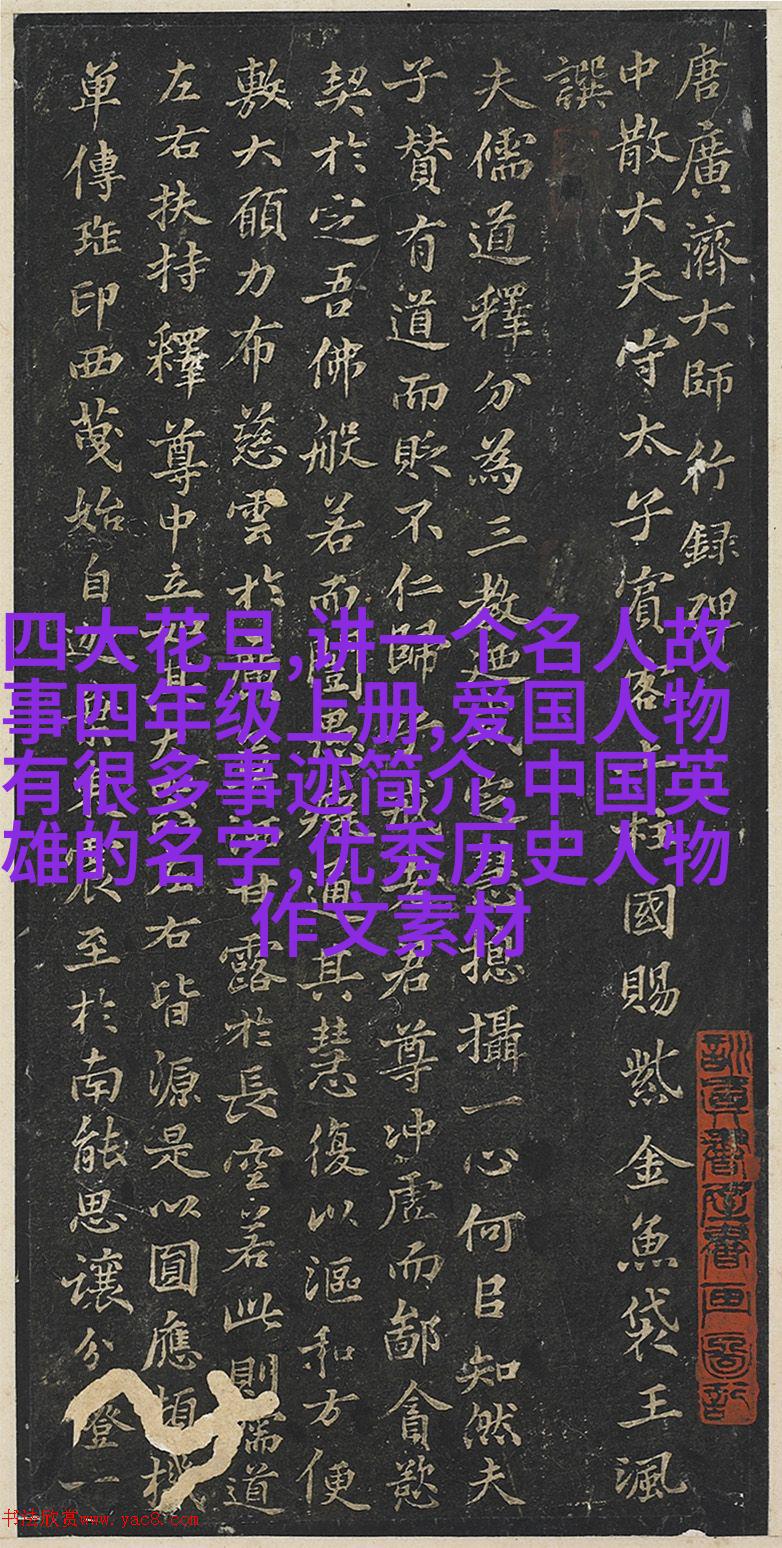 唐廣濟大師行録
中散大夫守太子賓客上柱國賜紫金魚袋王渢
譔
夫儒道釋分為三教廼總攝一心何㠯知然夫
子贊有道而貶不仁歸老君尊沖虛而鄙貪慾
契於空吾佛般若而闓愚癡通其慧復以漚和方便
敷大願力布慈雲於廣甘露於長空若此則儒道
左右扶持釋尊中立左右皆源是以圓應頓機
單傳印西始自至於南能思讓分燈一
四大花旦,讲一个名人故
事四年级上册,爱国人物
有很多事迹简介,中国英
雄的名字,优秀历史人物
作文素材
书法欣赏www.yac8.com